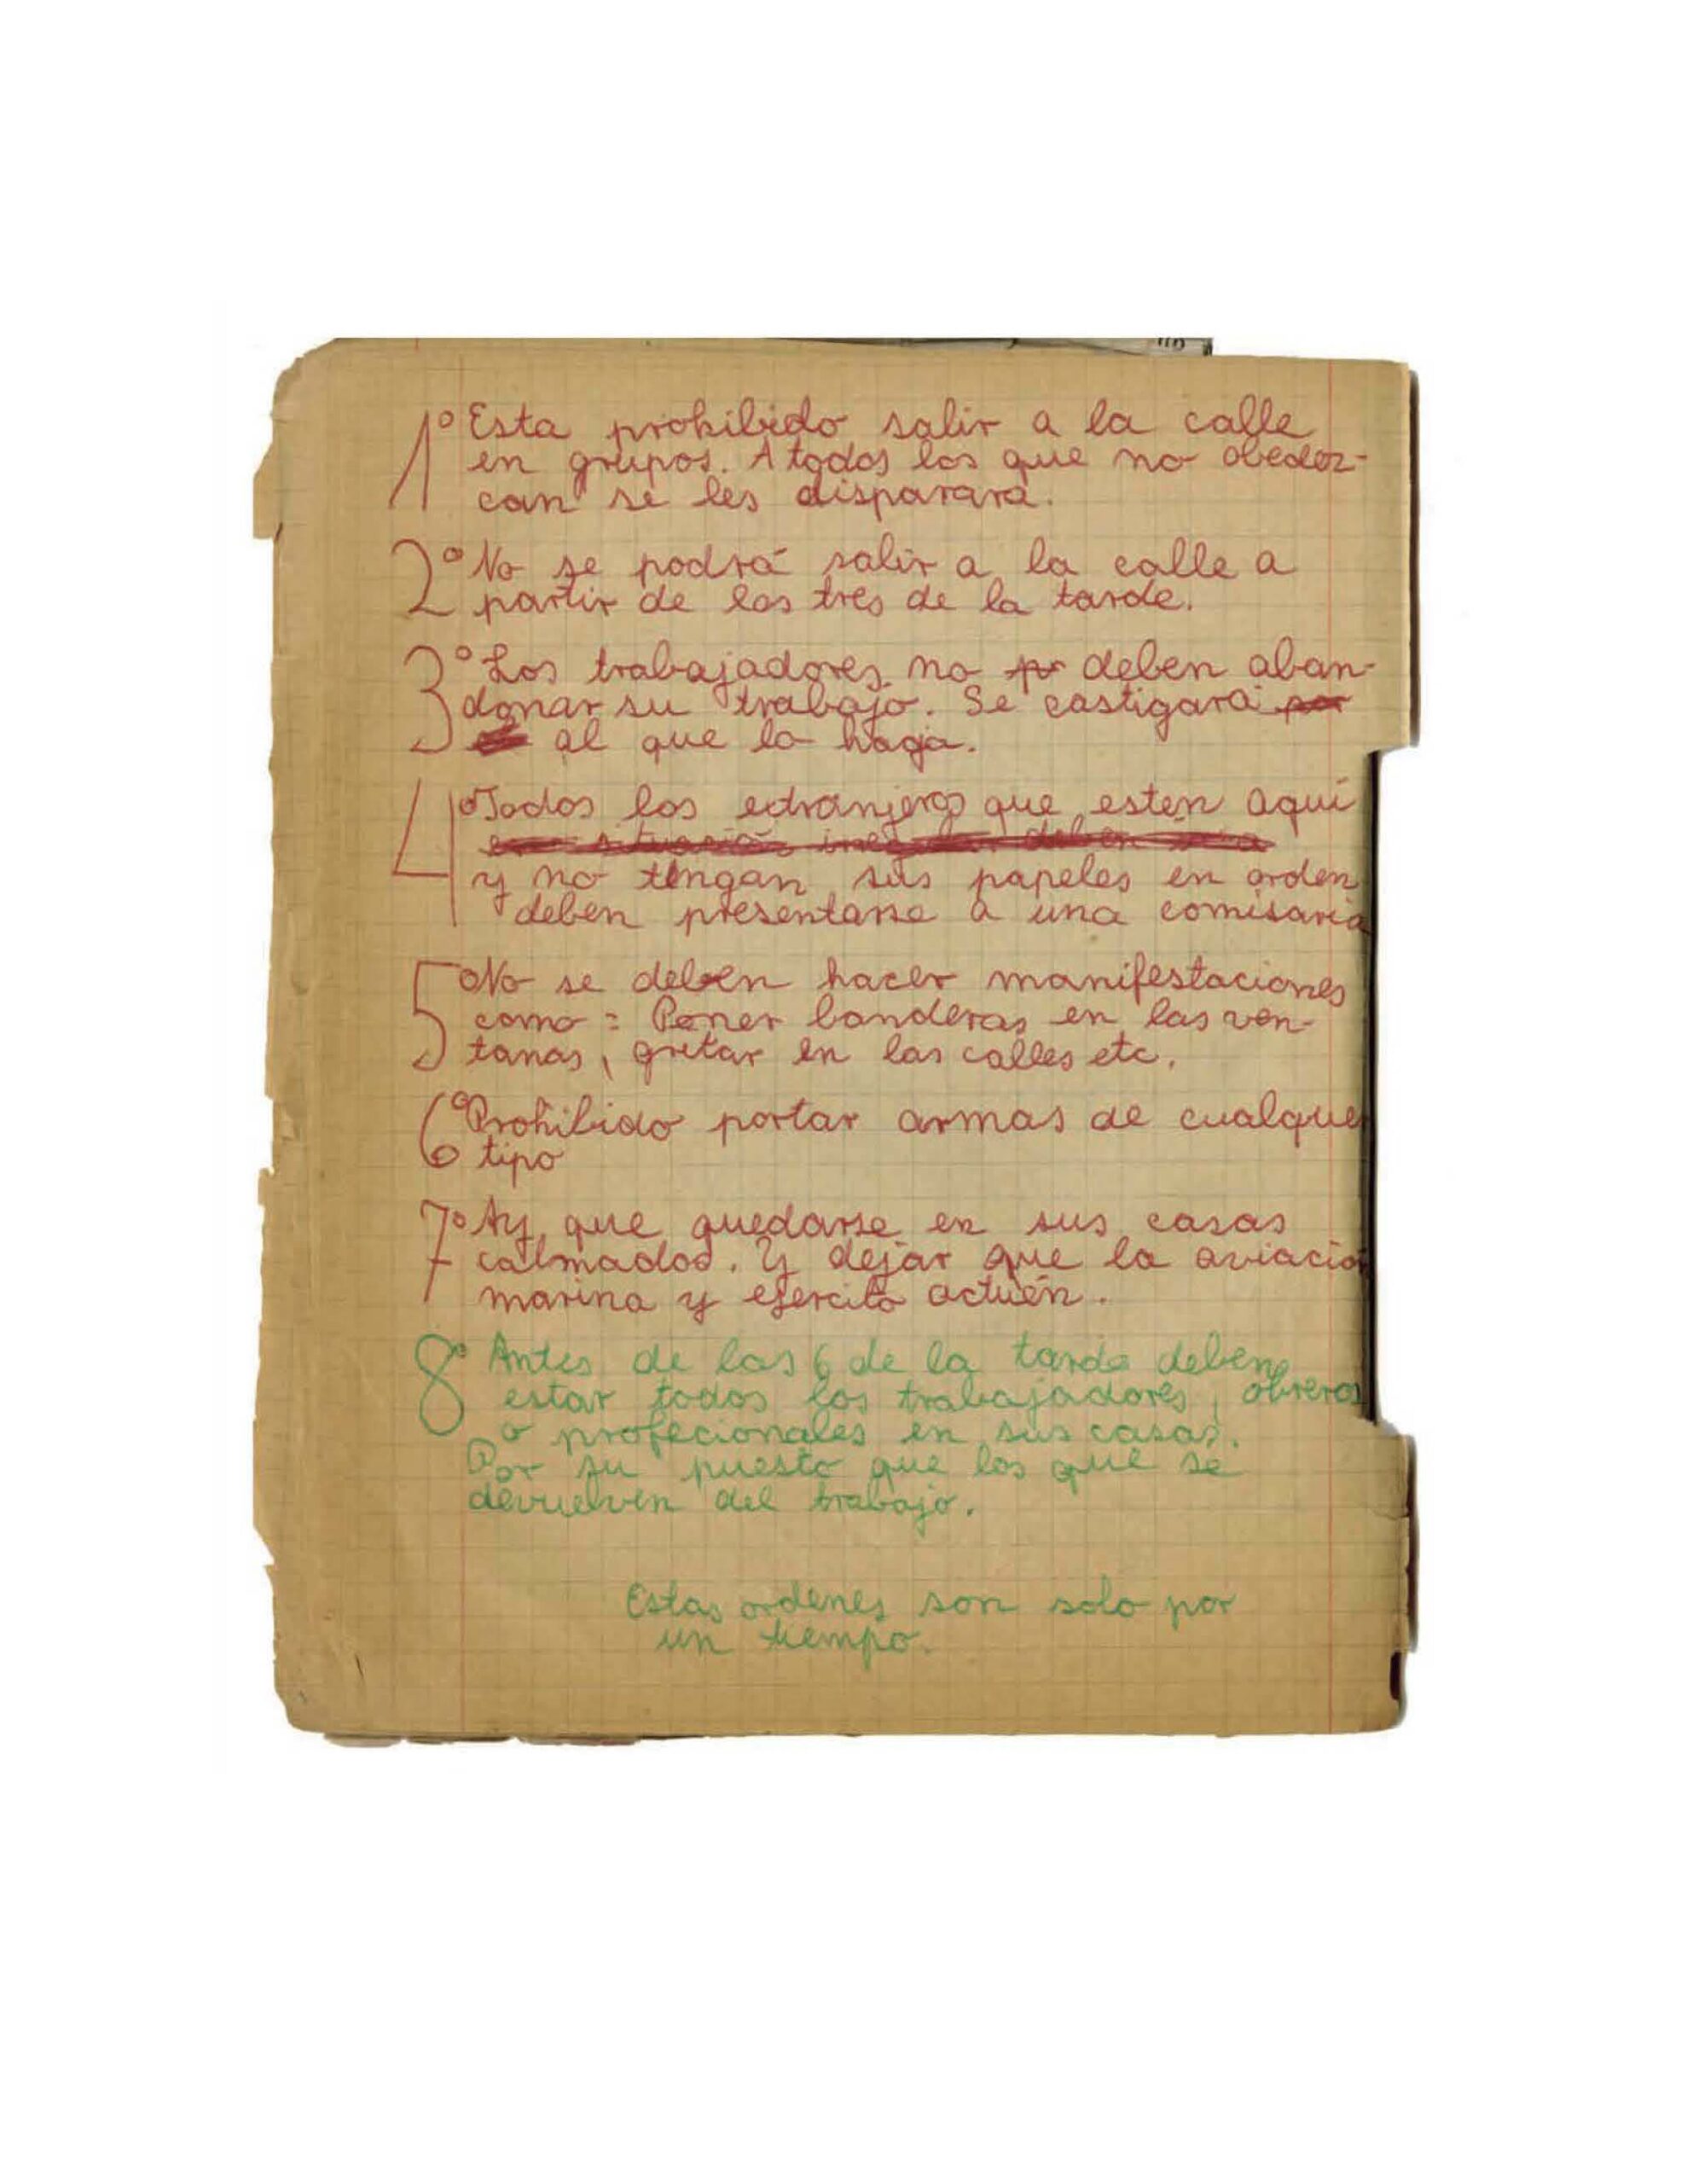 1º Esta prohibido salir a la calle
en grupos. A todos los que no obedez-
can se les disparara.
2º No se podrá salir a la calle a
partir de las tres de la tarde.
3º Los trabajadores no deben aban-
donar su trabajo. Se castigara por
al que lo haga.
4º Todos los extranjeros que esten aquí
deben
y no tengan sus papeles en orden
deben presentarse a una comisaria
5º No se deben hacer manifestaciones
como = Poner banderas en las ven-
tanas, gritar en las calles etc.
6º Prohibido portar armas de cualquer
tipo
7º Ay que quedarse en sus casas
calmados. Y dejar que la aviación
marina y ejercito actuén.
8º Antes de las 6 de la tarde deben
estar todos los trabajadores, obreros
o profecionales en sus casas.
Por su puesto que los que se
devuelven del trabajo.
Estas ordenes son solo por
un tiempo.